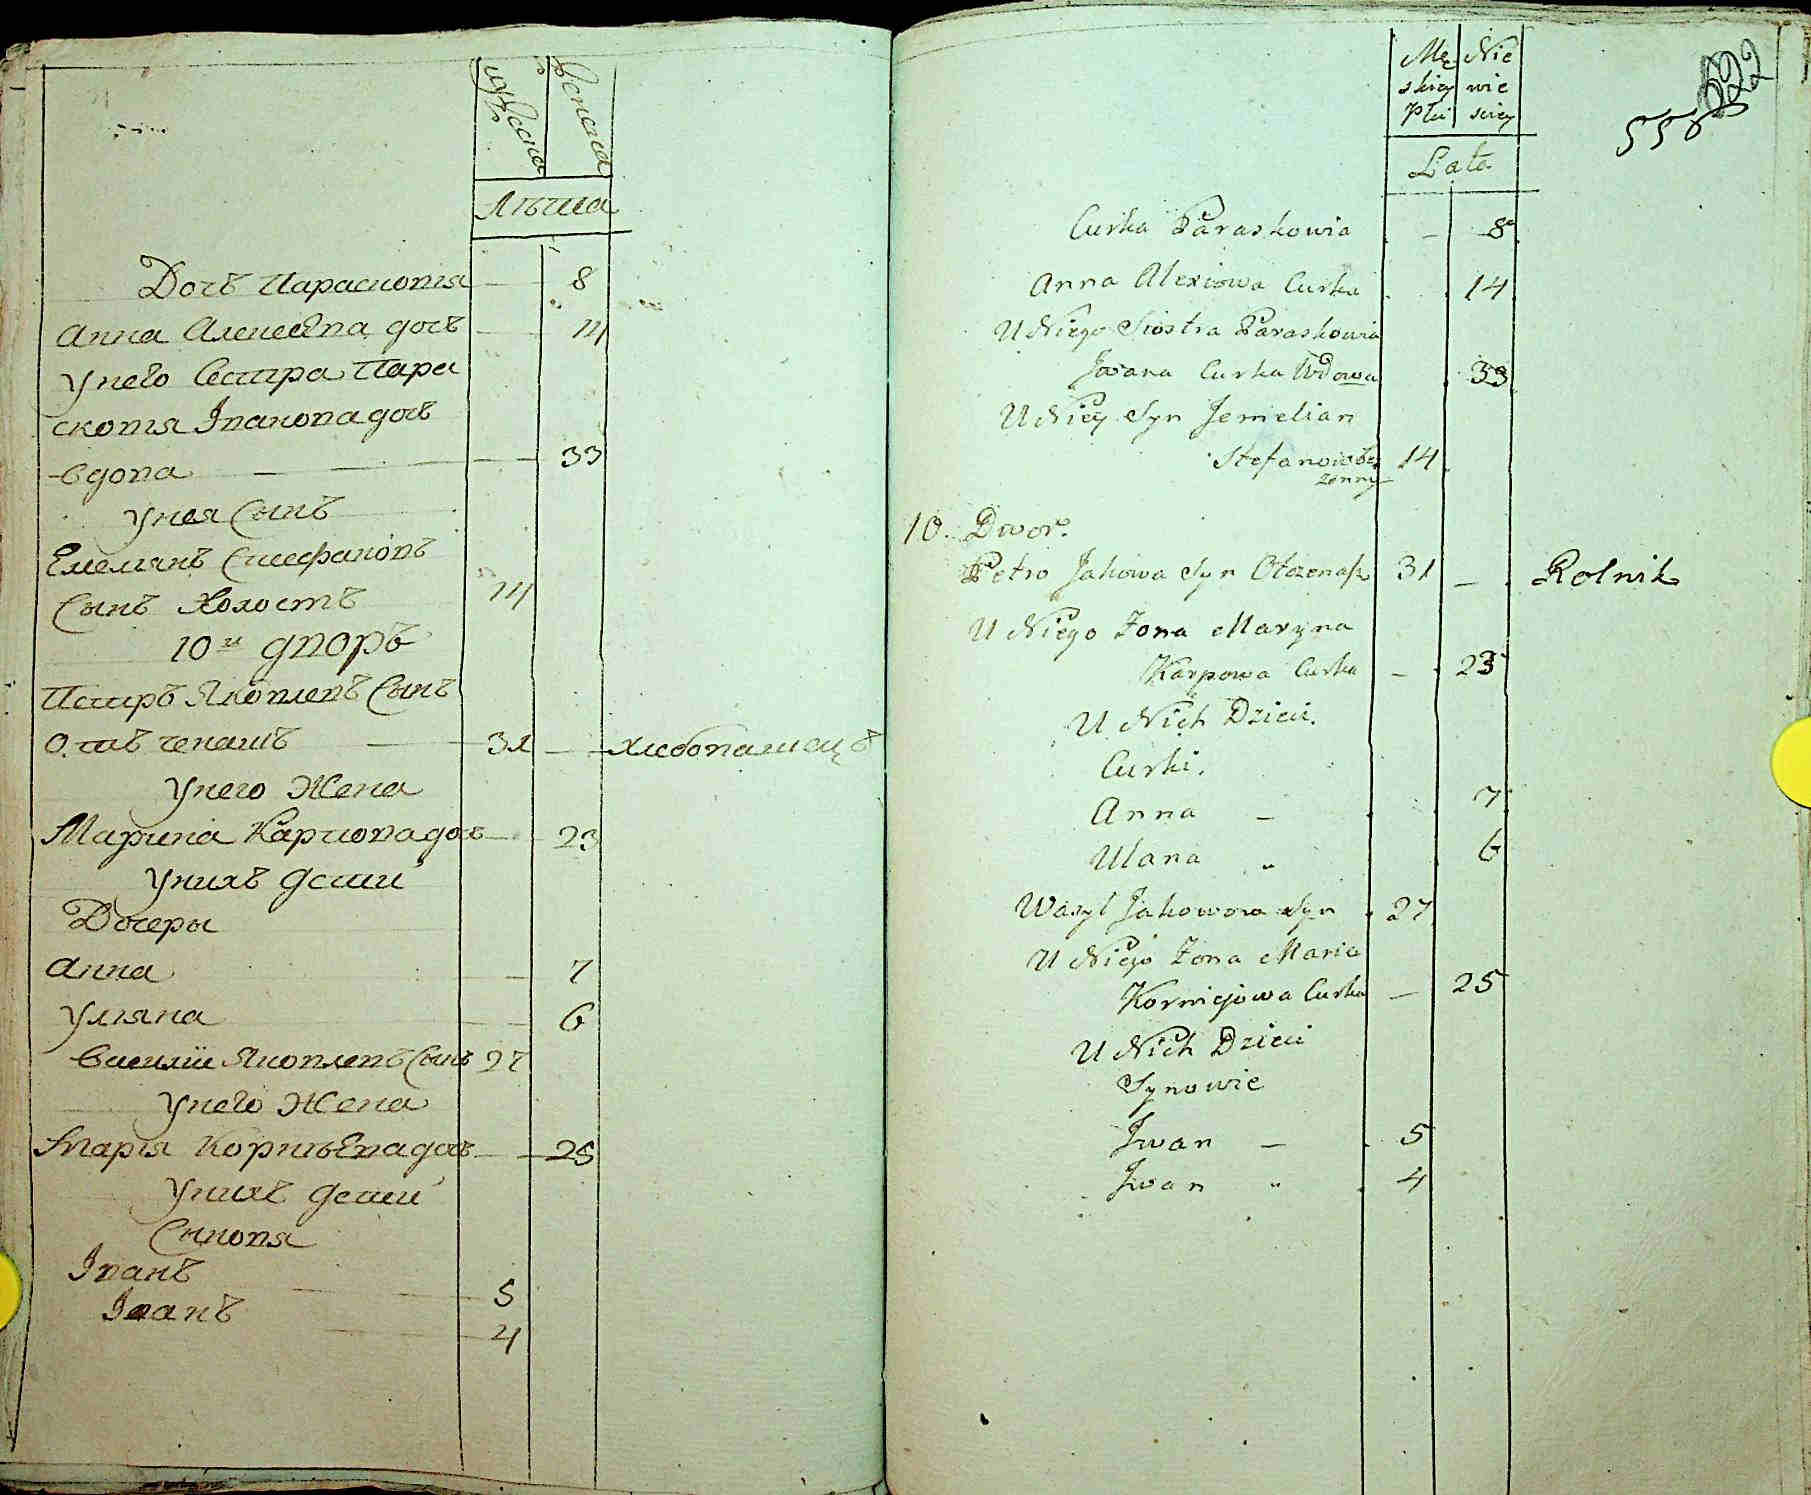 мужеска
женска
Лѣта
Дочь Параскопія 8
Анна Алексѣева дочь 14
Унего Сестра Пара
скопія Іванова дочь
вдова 33
Унея Сынъ
Емелянъ Стефановъ
Сынъ Холостъ 14
10й дворъ
Петръ Яковлевъ Сынъ
Отъченашъ 31 Хлебопашецъ
Унего Жена
Марина Карповадочь 23
Унихъ дети
Дочеры
Анна 7
Уляна 6
Василій Яковлевъ Сынъ 27
Унего Жена
Марія Корнѣевадочь 25
Унихъ дети
Сыновя
Іванъ 5
Іванъ 4
Mę Nie
skiey wie
Płci sciey
558
Lata
Curka Paraskowia — 8
Anna Alexiowa Curka 14
U Niego Siostra Paraskowia
Jwana Curka Wdowa 33
U Niey Syn Jemelian
Stefanow bez 14
żenny
10. Dwor.
Petro Jakowa Syn Otczenasz 31 — Rolnik
U Niego Żona Maryna
Karpowa Curka — 23
U Nich Dzieci.
Curki.
Anna — 7
Ulana „ 6
Wasyl Jakowowa Syn 27
U Niego Żona Maria
Korniejowa Curka — 25
U Nich Dzieci
Synowie
Jwan — 5
Jwan „ 4